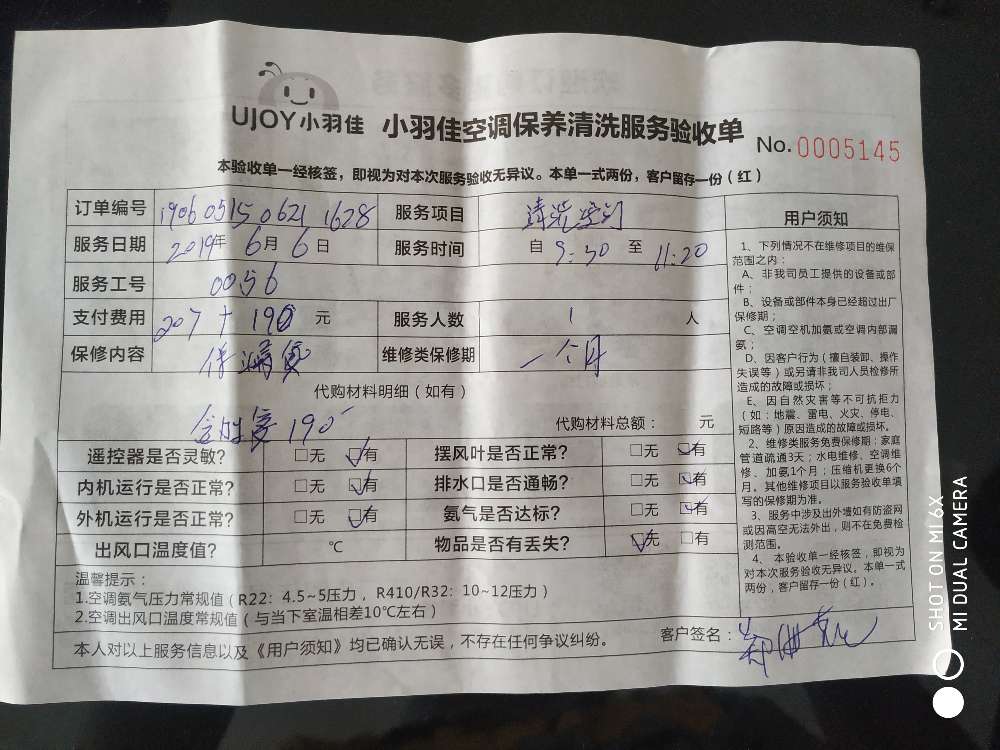 UJOY小羽佳 小羽佳空调保养清洗服务验收单 No.0005145
本验收单一经核签，即视为对本次服务验收无异议。本单一式两份，客户留存一份（红）
订单编号 190605150621 1628 服务项目 清洗空调
服务日期 2019年 6月 6日 服务时间 自 9:30 至 11:20
服务工号 0056
支付费用 207 + 190 元 服务人数 1 人
保修内容 维修类保修期 一个月
代购材料明细（如有）
190 代购材料总额： 元
遥控器是否灵敏？ □无 ☑有 摆风叶是否正常？ □无 ☑有
内机运行是否正常？ □无 ☑有 排水口是否通畅？ □无 ☑有
外机运行是否正常？ □无 ☑有 氨气是否达标？ □无 ☑有
出风口温度值？ ℃ 物品是否有丢失？ ☑无 □有
温馨提示：
1.空调氨气压力常规值（R22：4.5~5压力，R410/R32：10~12压力）
2.空调出风口温度常规值（与当下室温相差10℃左右）
本人对以上服务信息以及《用户须知》均已确认无误，不存在任何争议纠纷。 客户签名：
用户须知
1、下列情况不在维修项目的维保
范围之内：
A、非我司员工提供的设备或部
件；
B、设备或部件本身已经超过出厂
保修期；
C、空调空机加氨或空调内部漏
氨；
D、因客户行为（擅自装卸、操作
失误等）或另请非我司人员检修所
造成的故障或损坏；
E、因自然灾害等不可抗拒力
（如：地震、雷电、火灾、停电、
短路等）原因造成的故障或损坏。
2、维修类服务免费保修期：家庭
管道疏通3天；水电维修、空调维
修、加氨1个月；压缩机更换6个
月。其他维修项目以服务验收单填
写的保修期为准。
3、服务中涉及出外墙如有防盗网
或因高空无法外出，则不在免费检
测范围。
4、本验收单一经核签，即视为
对本次服务验收无异议。本单一式
两份，客户留存一份（红）。
SHOT ON MI 6X
MI DUAL CAMERA